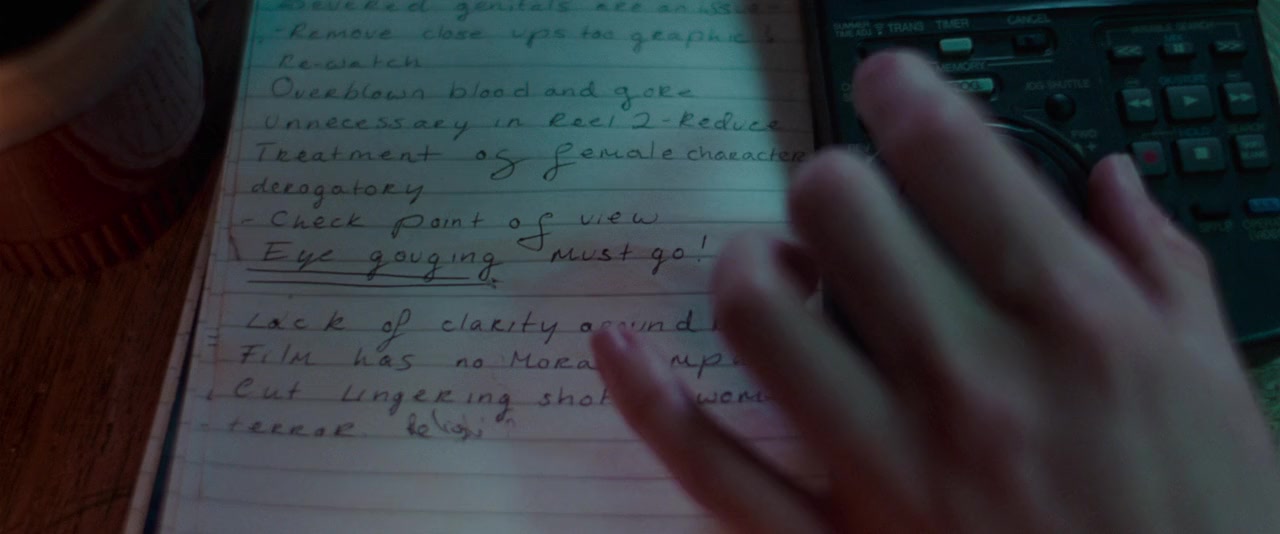 Severed genitals are an issue
-Remove close ups too graphic!
Re-watch
Overblown blood and gore
Unnecessary in Reel 2-Reduce
Treatment of female character
derogatory
- Check point of view
Eye gouging must go!
Lack of clarity around
Film has no Mora
Cut lingering shot
terror.
TRANS TIMER CANCEL
MEMORY
JOG SHUTTLE